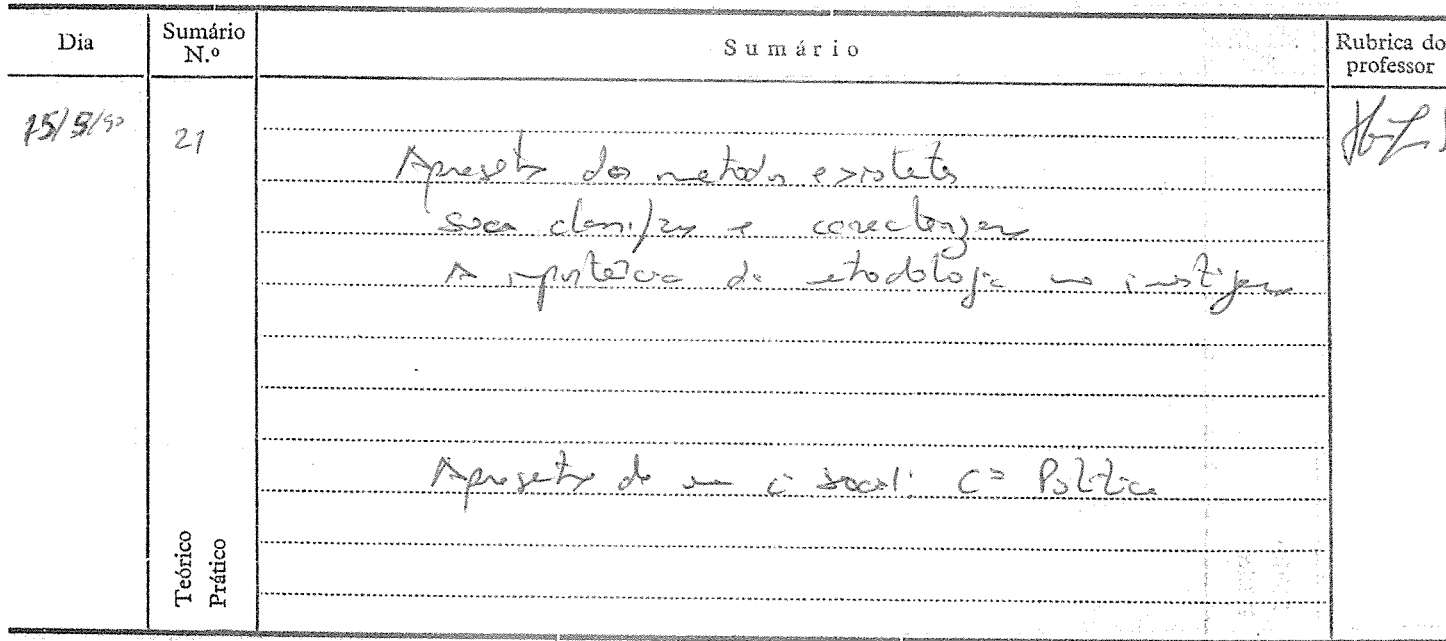 Dia
Sumário N.º
Sumário
Rubrica do professor
15/3/90
21
Apresentação dos métodos existentes
sua classificação e caracterização
A importância da metodologia na investigação
Apresentação de uma c. social: Cª Política
Teórico
Prático